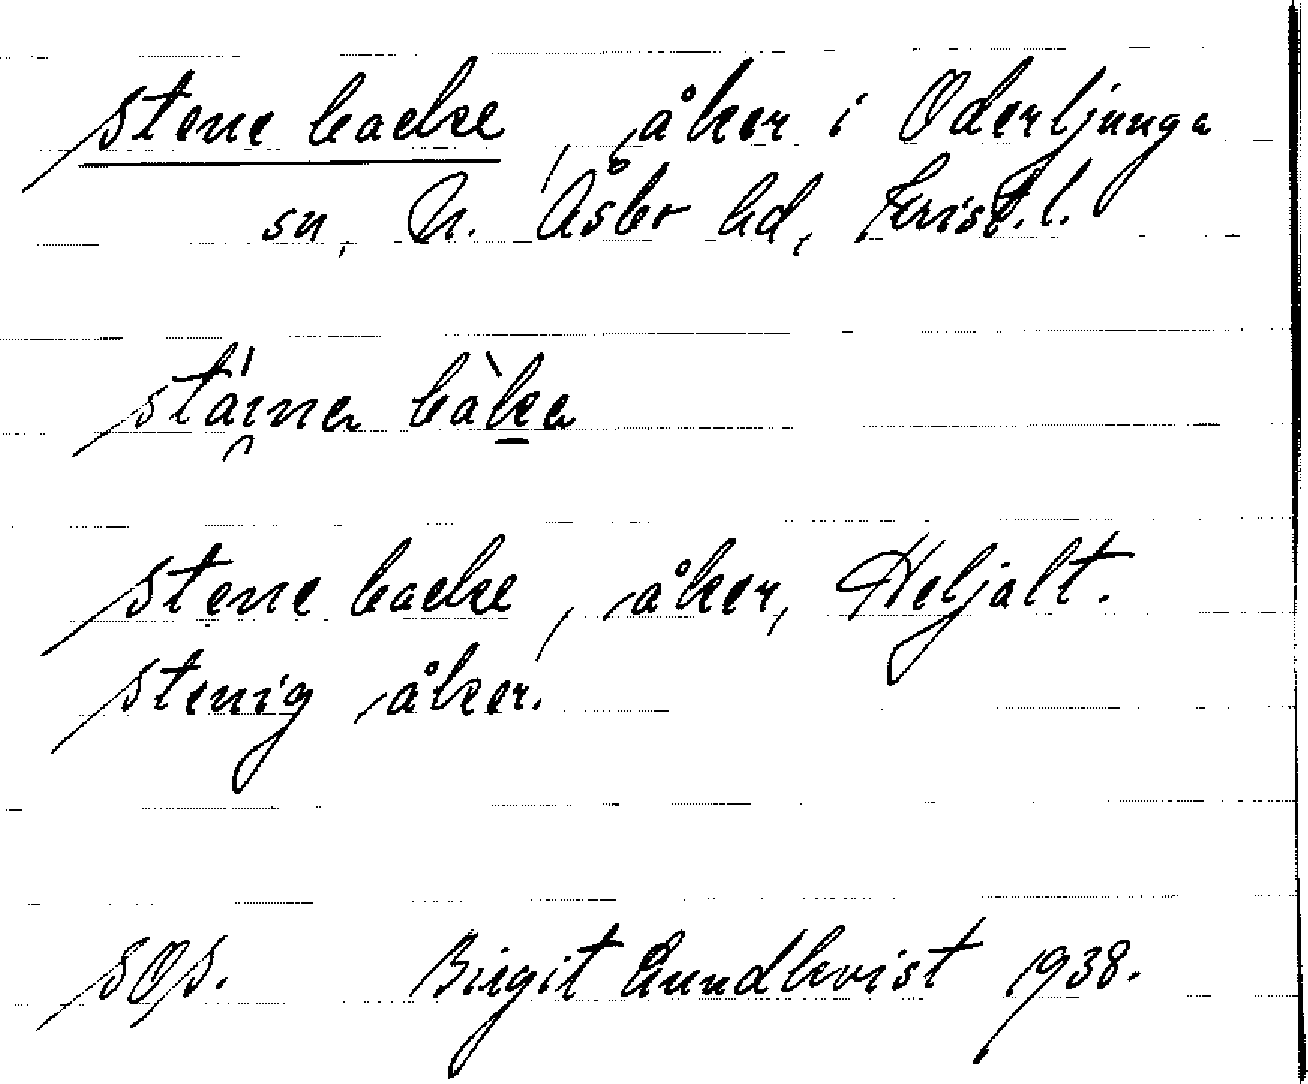 Stene backe, åker i Oderljunga
sn, N. Åsbo hd, Krist.l.
stene backe, åker, Heljalt.
stenig åker.
SOS. Birgit Lundkvist 1938.